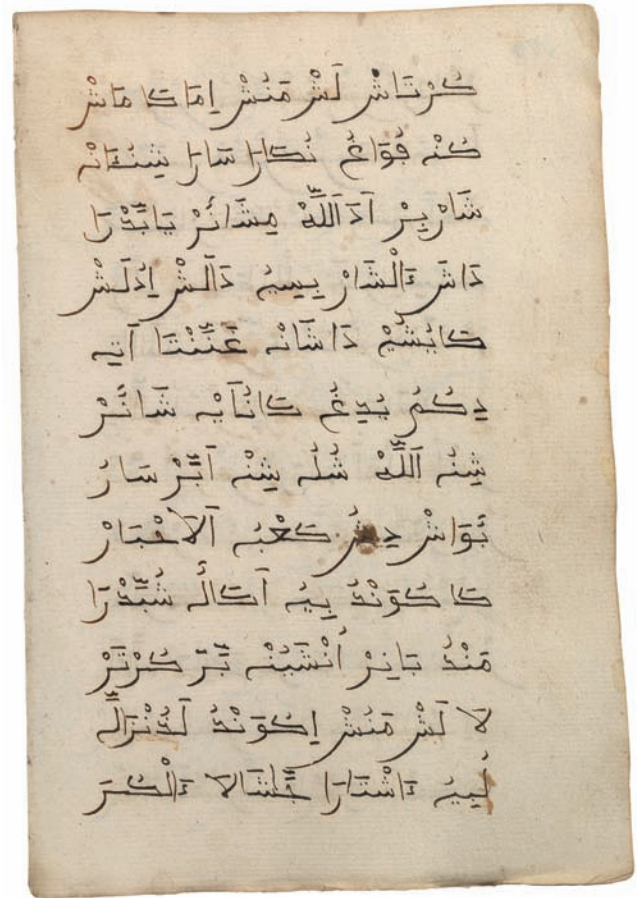 كُرْتَاشْ لَشْ مَنُشْ اِمَاكَا مَاشْ
كُنْ فُوَاغُ نُكَارَا سَارَا شِنُذَانْ
شَارْبِرْ اَذَاللَّهْ مِشَانُرْ يَابَّدْرَا
ذَاشَ ءَالْشَارْ بِيسِيُ ذَالَشْ اِذلَشْ
كَابُشُيْ ذَاشَانْ عَنِّنْتَا اَتِ
دِكُمُ يُدِغُ كَانُآيْ شَانُرْ
شِنُ اَللَّهْ شُلُ شِنْ اَبَّرْ سَارُ
بُوَاشْ دِشُ كَعْبُ اَلاَخْبَارْ
كَا كُوَنْدُ بِيُ اَكَالُ شُبَّدْرَا
مَنْدُ بَانِرْ اُنْشَيُنْ بَّرَّ كُرْتَرْ
لَا لَشْ مَنُشْ اِكُوَنْدُ لَذُنْزَالَّ
لُبِيُ ءَاشْتَارَا جَّشَالا ءَالْكُرَ